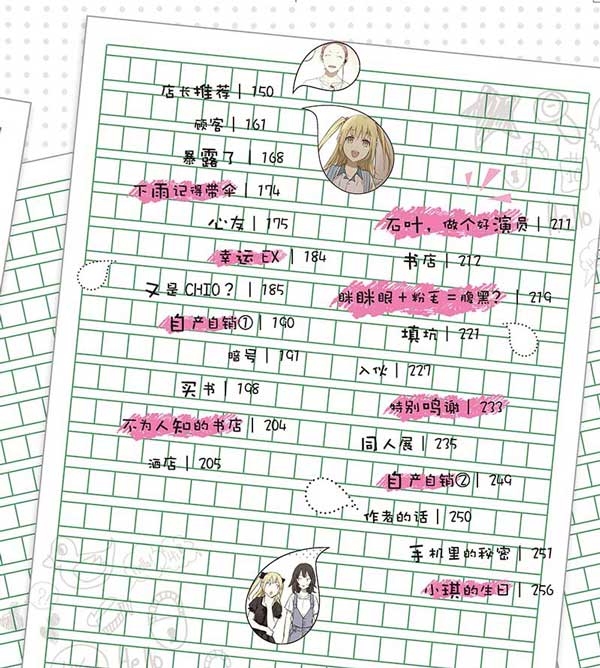 店长推荐 | 150
顾客 | 161
暴露了 | 168
不雨记得带伞 | 174
心友 | 175
幸运EX | 184
又是CHIO? | 185
自产自销① | 190
暗号 | 191
买书 | 198
不为人知的书店 | 204
酒店 | 205
石叶，做个好演员 | 211
书店 | 212
眯眯眼+粉毛=腹黑? | 219
填坑 | 221
入伙 | 227
特别鸣谢 | 233
同人展 | 235
自产自销② | 249
作者的话 | 250
手机里的秘密 | 251
小琪的生日 | 256